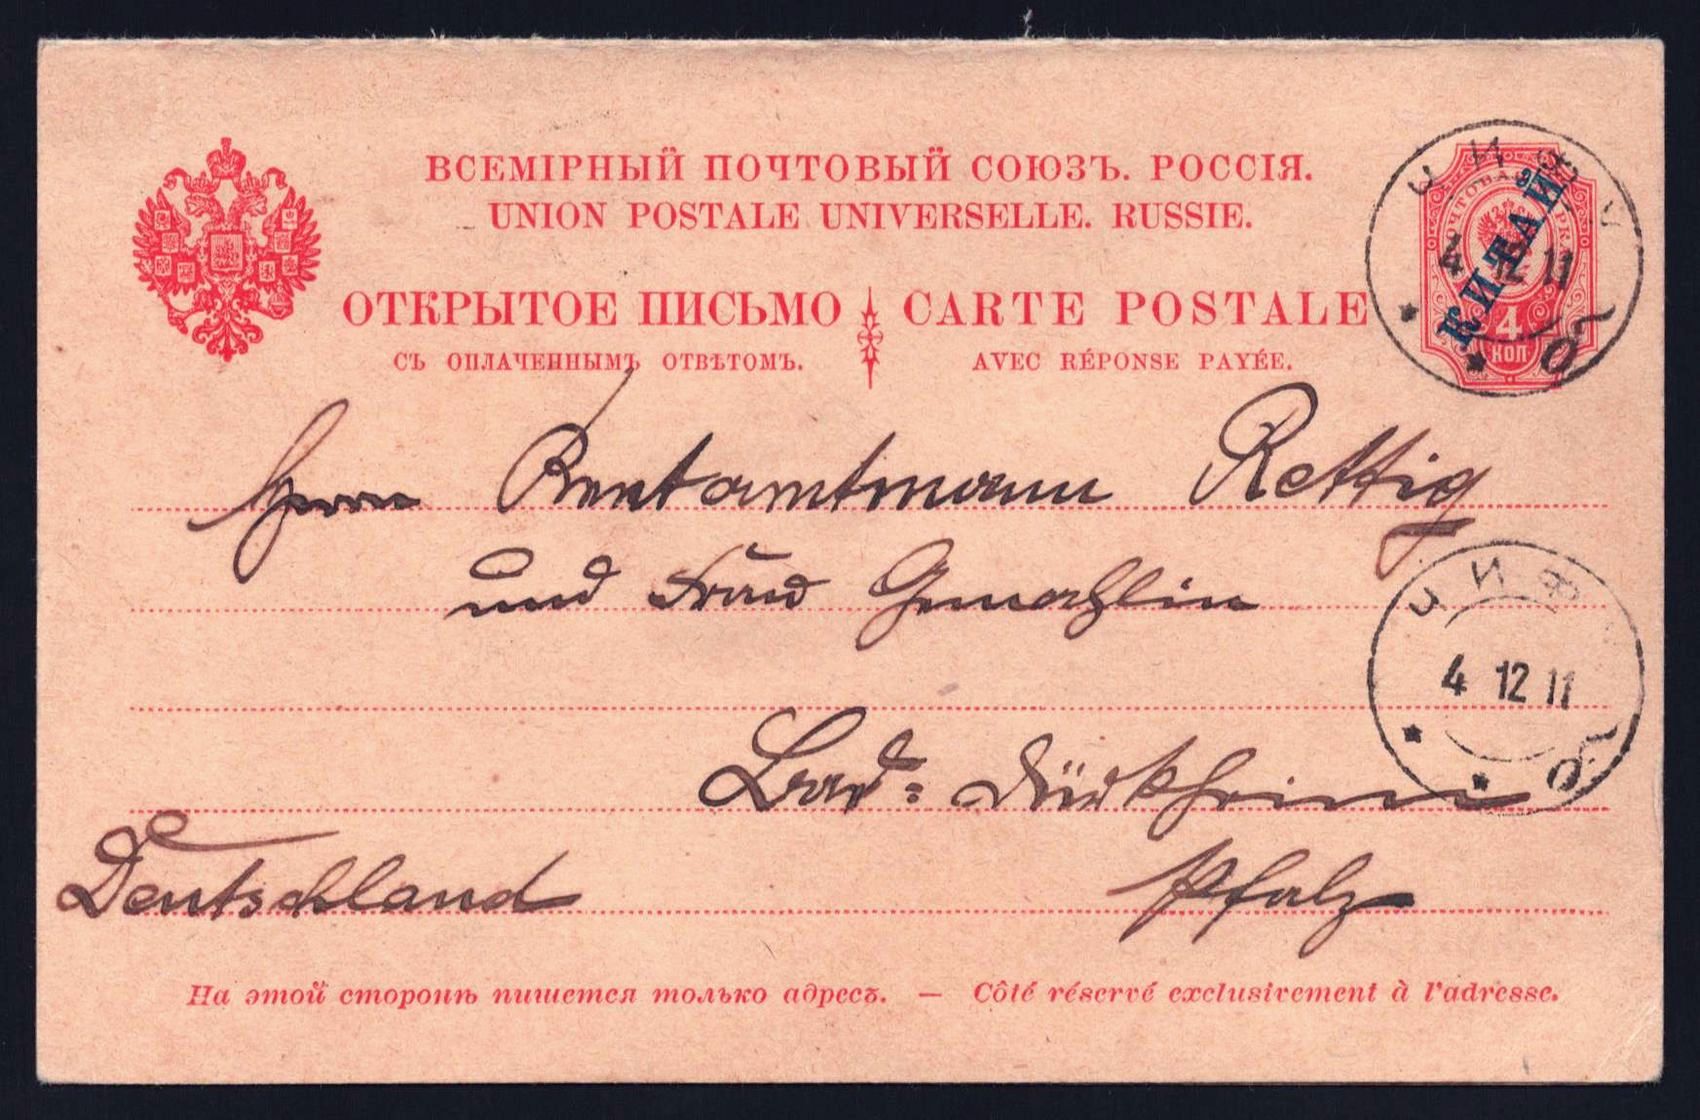 ВСЕМІРНЫЙ ПОЧТОВЫЙ СОЮЗЪ. РОССІЯ.
UNION POSTALE UNIVERSELLE. RUSSIE.
ОТКРЫТОЕ ПИСЬМО CARTE POSTALE
СЪ ОПЛАЧЕННЫМЪ ОТВѢТОМЪ. AVEC RÉPONSE PAYÉE.
КИТАЙ
4
КОП
ЧИФУ
4 12 11
б
Herrn Rentamtmann Rettig
und Frau Gemahlin
ЧИФ
4 12 11
б
Bad= Dürkheim
Deutschland Pfalz
На этой сторонѣ пишется только адресъ. — Côté réservé exclusivement à l'adresse.